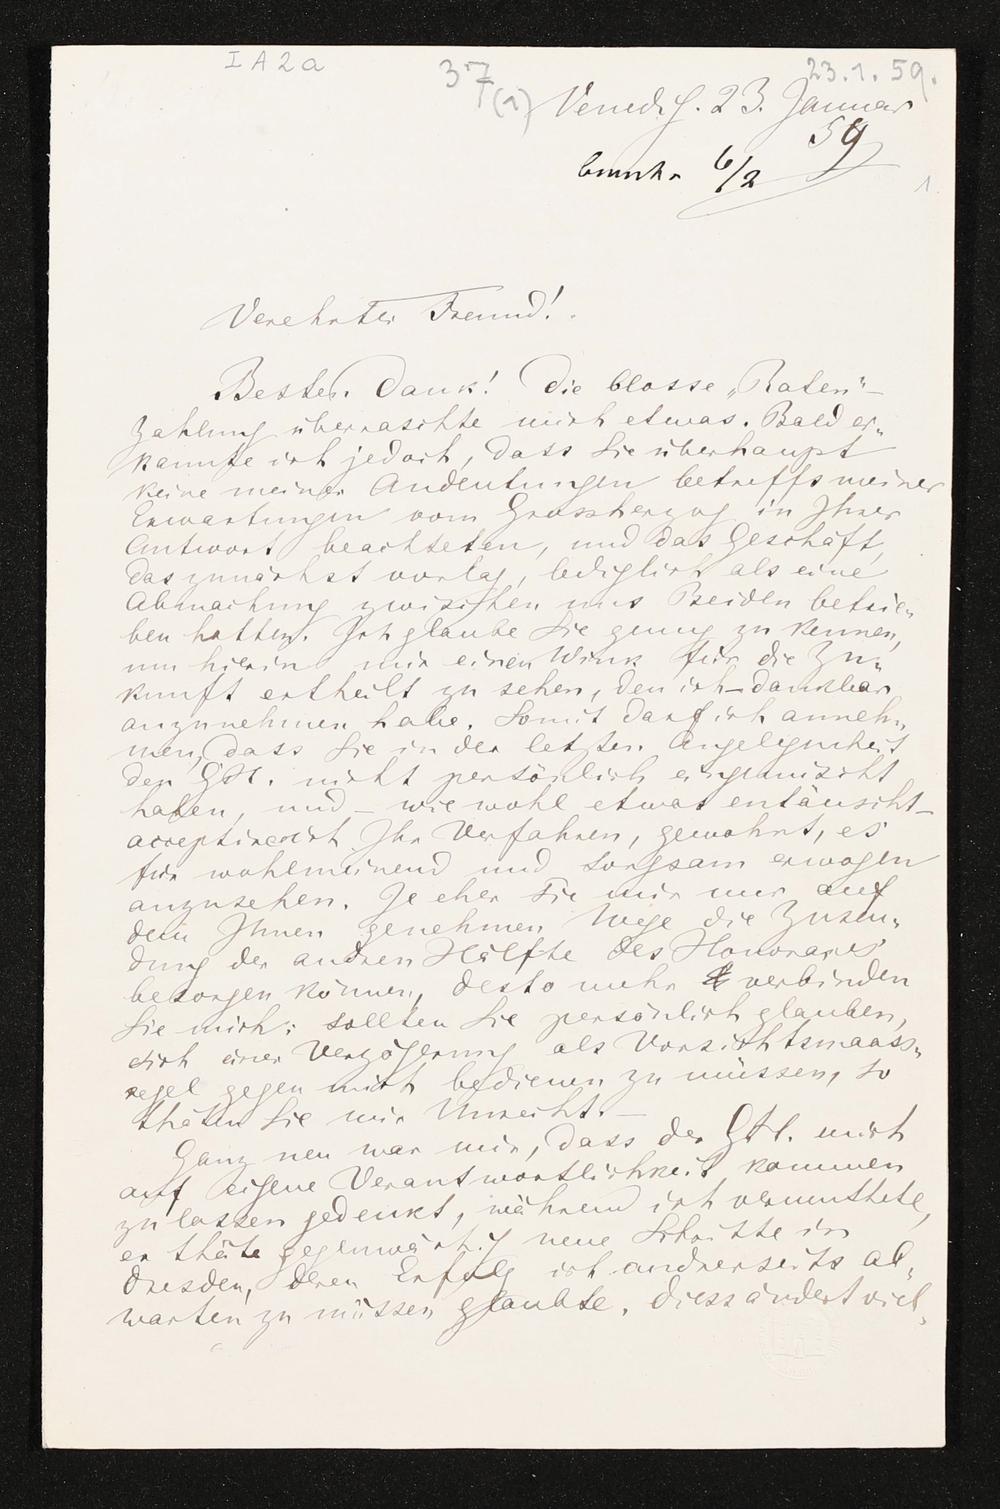 I A 2 a
37
(1)
23.1.59.
Venedig. 23. Januar
59
6/2
1
Verehrter Freund!
Besten Dank! Die blosse „Raten"-
zahlung überraschte mich etwas. Bald er-
kannte ich jedoch, dass Sie überhaupt
keine meiner Andeutungen betreffs meiner
Erwartungen vom Grossherzog in Ihrer
Antwort beachteten, und das Geschäft,
das zunächst vorlag, lediglich als eine
Abmachung zwischen uns Beiden betrie-
ben hatten. Ich glaube Sie genug zu kennen,
um hierin mir einen Wink für die Zu-
kunft ertheilt zu sehen, den ich dankbar
anzunehmen habe. Somit darf ich anneh-
men, dass Sie in der letzten Angelegenheit
den GH. nicht persönlich eingemischt
haben, und – wiewohl etwas entäuscht –
acceptire ich Ihr Verfahren, gewohnt, es
für wohlmeinend und sorgsam erwogen
anzusehen. Je eher Sie mir nur auf
dem Ihnen genehmen Wege die Zusen-
dung der andren Hälfte des Honorares
besorgen können, desto mehr verbinden
Sie mich: sollten Sie persönlich glauben,
sich einer Verzögerung als Vorsichtsmaass-
regel gegen mich bedienen zu müssen, so
thäten Sie mir Unrecht. –
Ganz neu war mir, dass der GH. mich
auf eigene Verantwortlichkeit kommen
zu lassen gedenkt, während ich vermuthete,
er thäte gegenwärtig neue Schritte in
Dresden, deren Erfolg ich andrerseits ab-
warten zu müssen glaubte. Diess ändert viel-